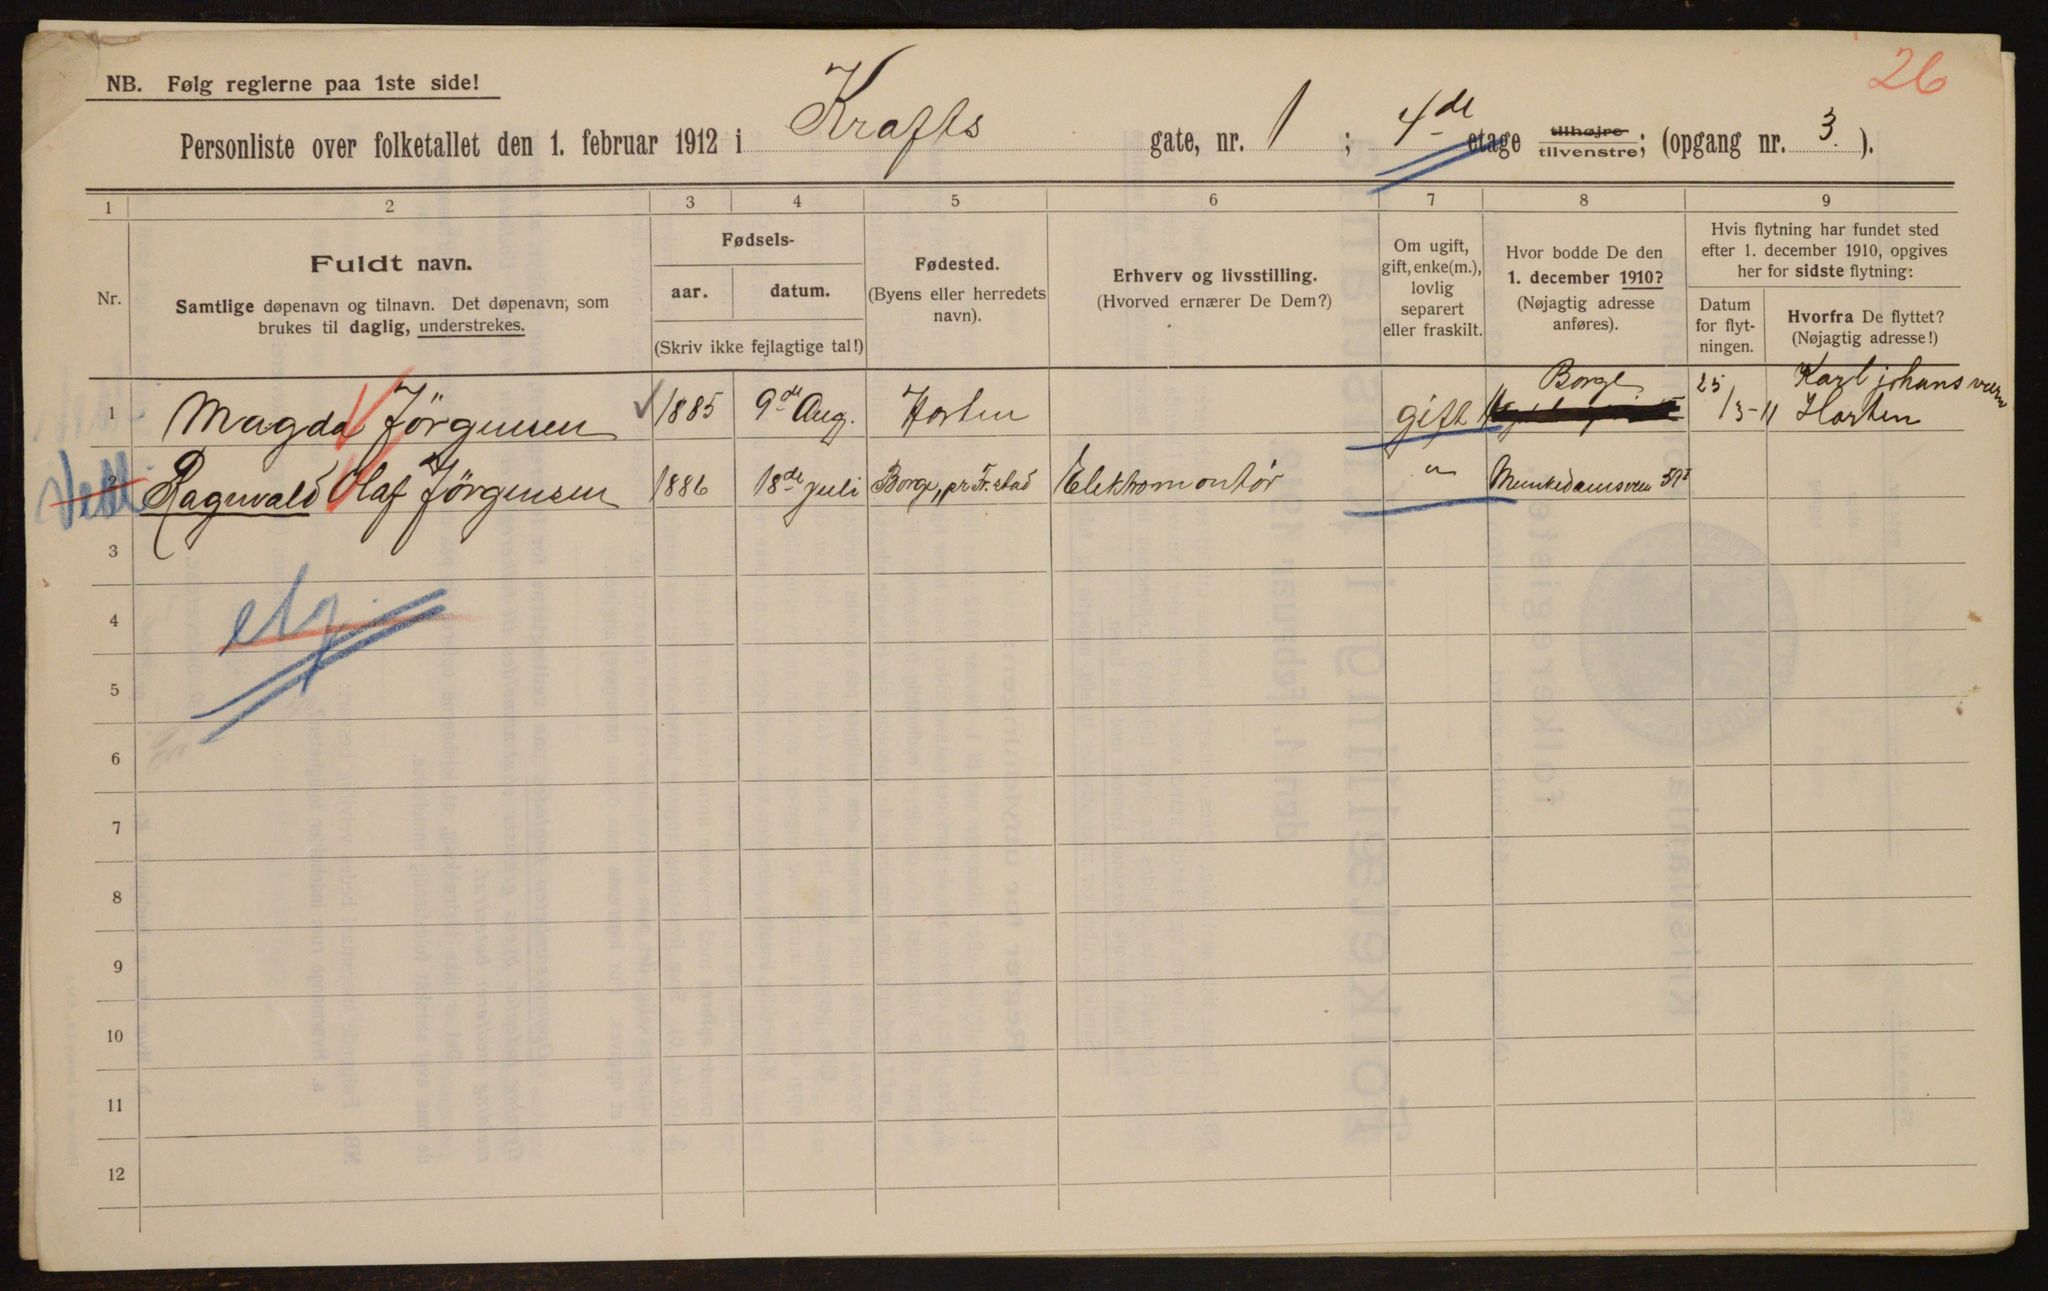 26
NB. Følg reglerne paa 1ste side!
Personliste over folketallet den 1. februar 1912 i Krafts gate, nr. 1 ; 4de etage tilhøjre tilvenstre; (opgang nr. 3. ).
1 2 3 4 5 6 7 8 9
Nr.
Fuldt navn.
Samtlige døpenavn og tilnavn. Det døpenavn, som
brukes til daglig, understrekes.
Fødsels-
aar. datum.
(Skriv ikke fejlagtige tal!)
Fødested.
(Byens eller herredets
navn).
Erhverv og livsstilling.
(Hvorved ernærer De Dem?)
Om ugift,
gift, enke(m.),
lovlig
separert
eller fraskilt.
Hvor bodde De den
1. december 1910?
(Nøjagtig adresse
anføres).
Hvis flytning har fundet sted
efter 1. december 1910, opgives
her for sidste flytning:
Datum
for flyt-
ningen.
Hvorfra De flyttet?
(Nøjagtig adresse!)
1 Magda Jörgensen 1885 9de Aug. Horten gift Borge 25/3-11 Karl johans værn Horten
2 Ragnvald Olaf Jörgensen 1886 18de juli Borge, pr Fr.stad Elektromontör " Munkedamsveien 59I
3
4
5
6
7
8
9
10
11
12